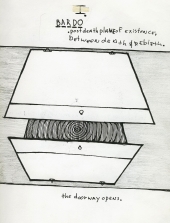 BARDO
.post death plane of existence,
between death & rebirth.
the doorway opens.